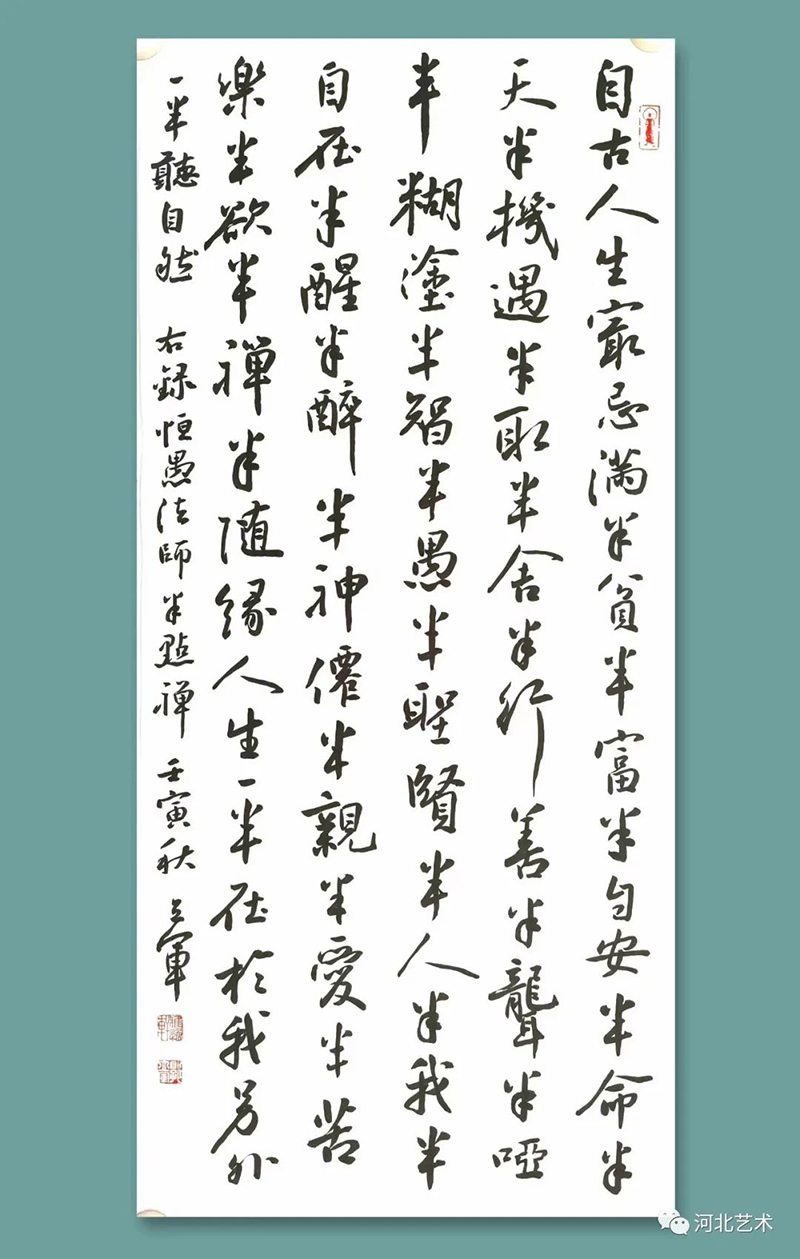 自古人生最忌满半貧半富半自安半命半
天半機遇半取半舍半行善半聾半啞
半糊塗半智半愚半聖賢半人半我半
自在半醒半醉半神僊半親半愛半苦
樂半欲半禪半随緣人生一半在於我另外
一半聽自然 右録恒愚法師半點禅 壬寅秋 軍
河北艺术